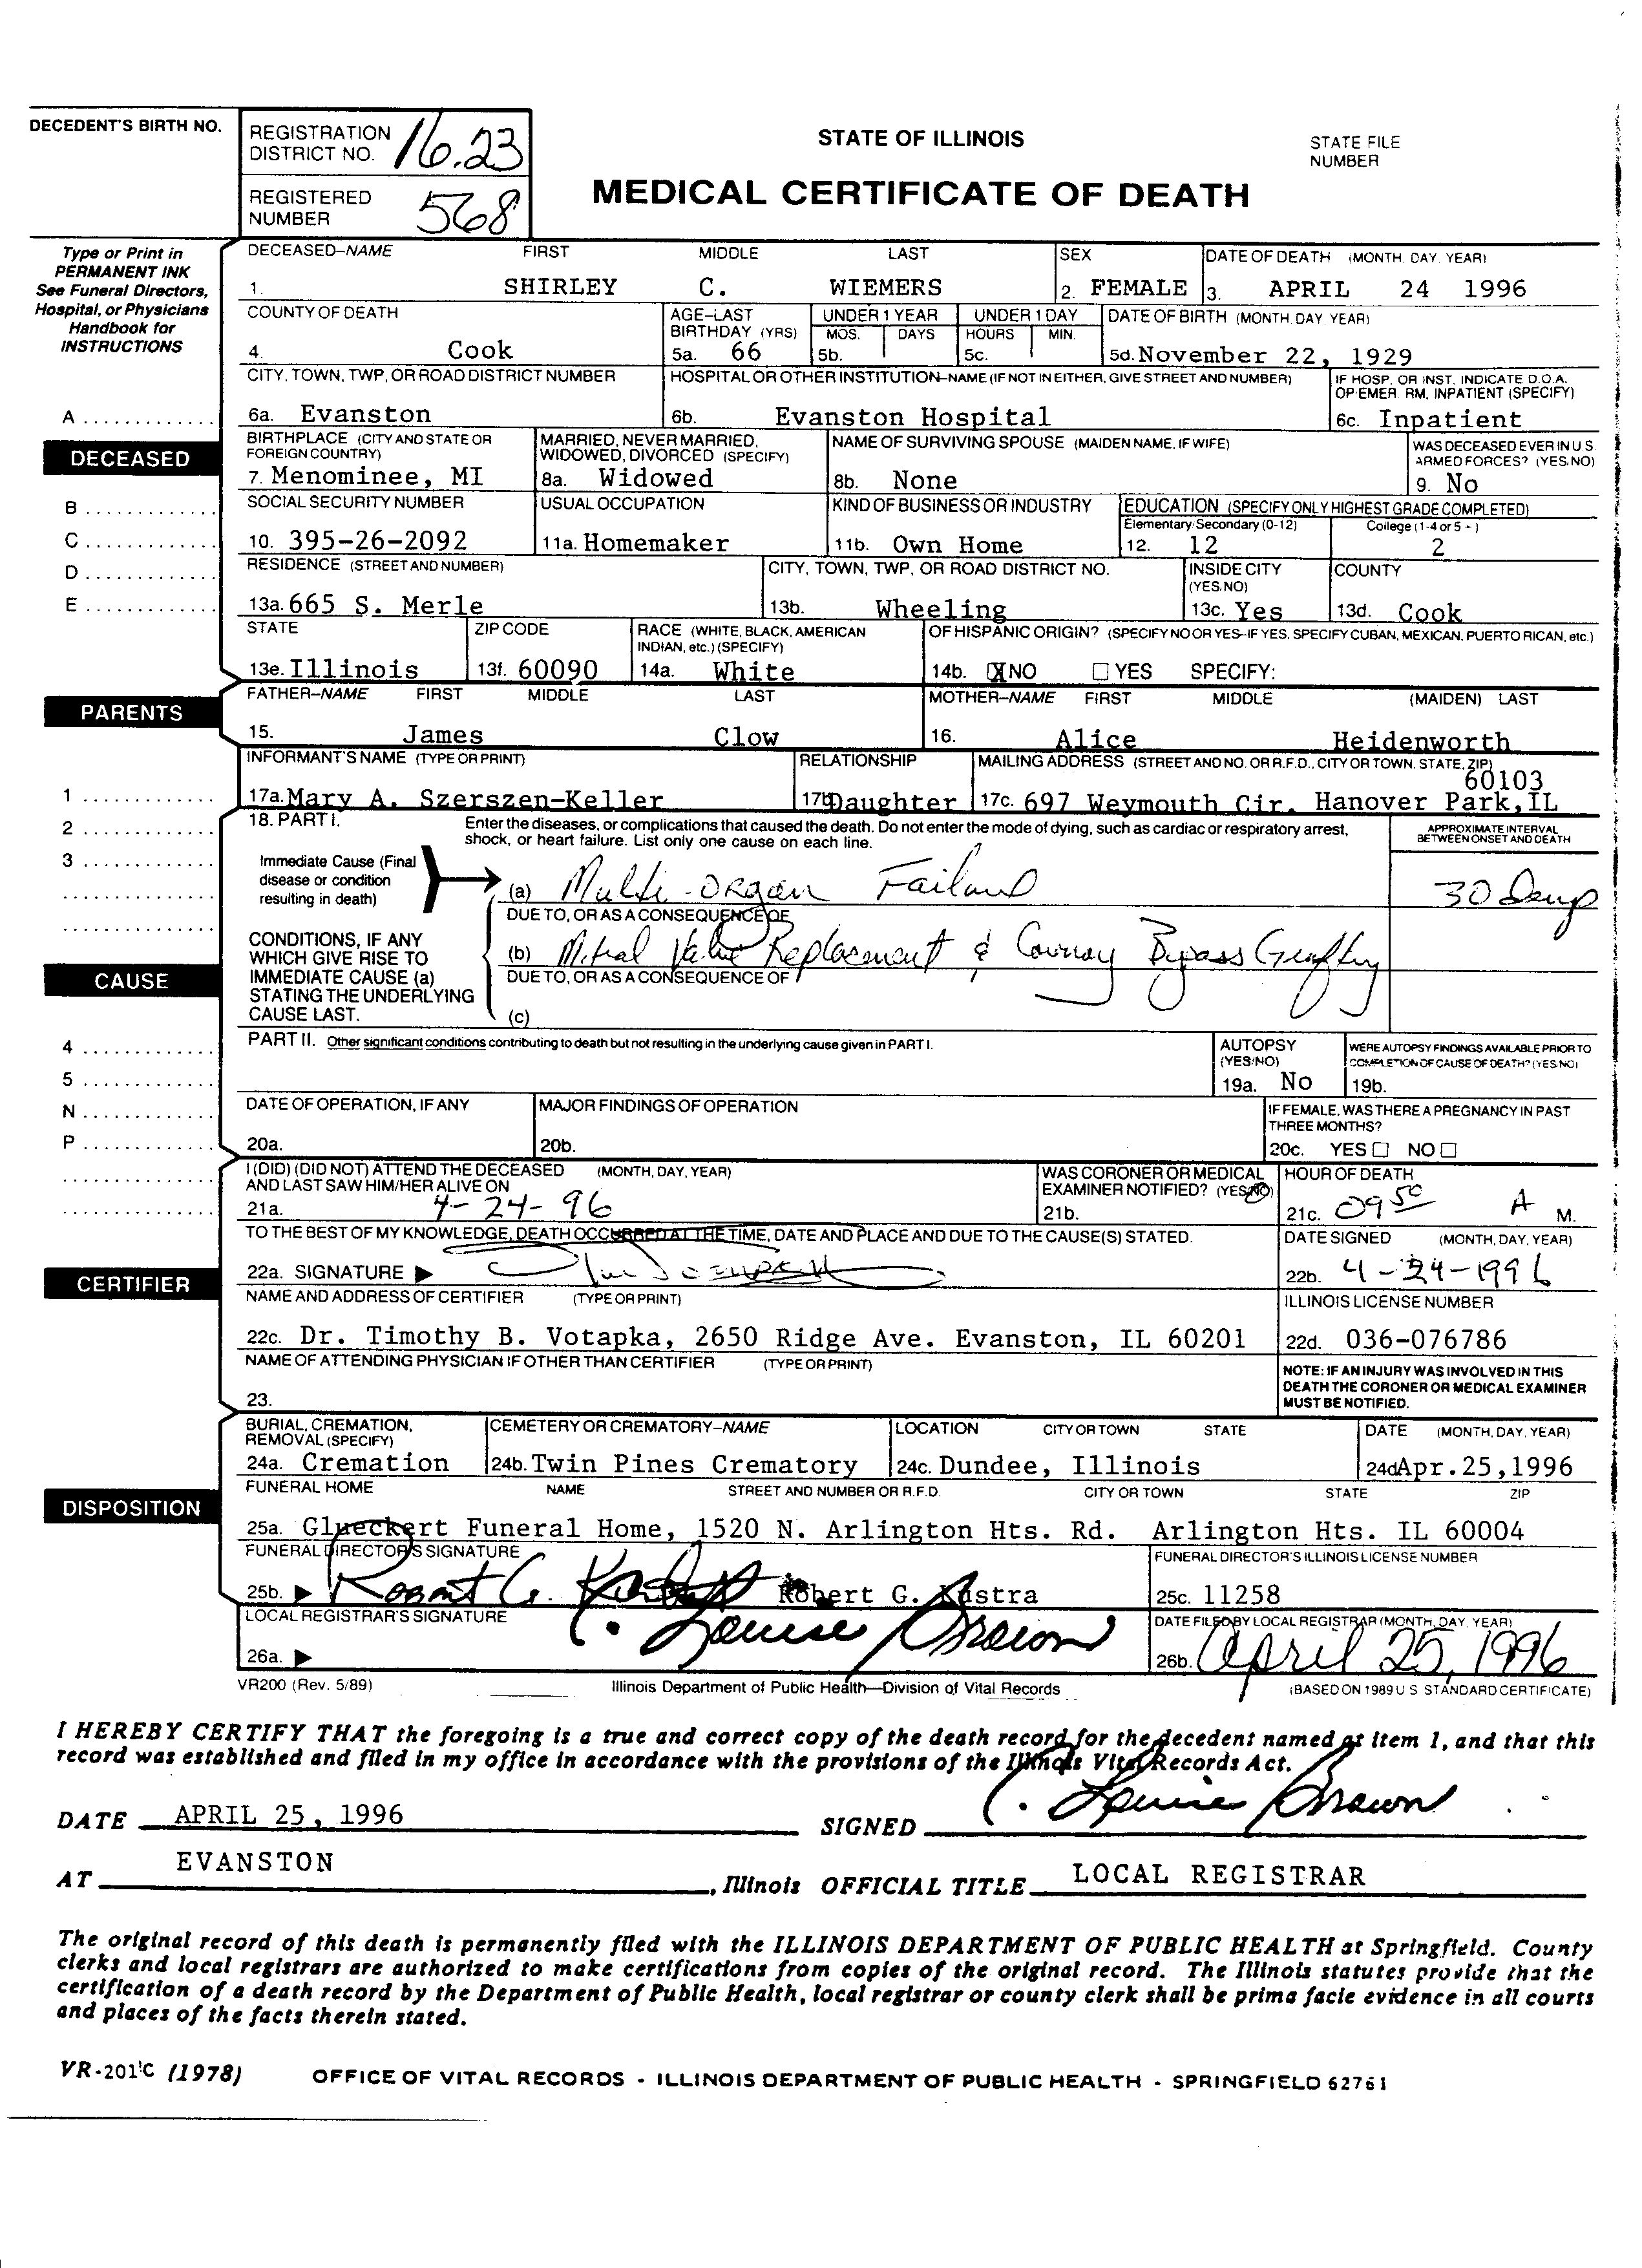 DECEDENT'S BIRTH NO.
REGISTRATION DISTRICT NO. 16.23
STATE OF ILLINOIS
STATE FILE NUMBER
REGISTERED NUMBER 568
MEDICAL CERTIFICATE OF DEATH
Type or Print in PERMANENT INK See Funeral Directors, Hospital, or Physicians Handbook for INSTRUCTIONS
DECEASED–NAME FIRST MIDDLE LAST SEX DATE OF DEATH (MONTH, DAY, YEAR)
1. SHIRLEY C. WIEMERS 2. FEMALE 3. APRIL 24 1996
COUNTY OF DEATH AGE–LAST BIRTHDAY (YRS) UNDER 1 YEAR MOS. DAYS UNDER 1 DAY HOURS MIN. DATE OF BIRTH (MONTH, DAY, YEAR)
4. Cook 5a. 66 5b. 5c. 5d. November 22, 1929
CITY, TOWN, TWP, OR ROAD DISTRICT NUMBER HOSPITAL OR OTHER INSTITUTION–NAME (IF NOT IN EITHER, GIVE STREET AND NUMBER) IF HOSP. OR INST. INDICATE D.O.A. OP/EMER. RM, INPATIENT (SPECIFY)
A 6a. Evanston 6b. Evanston Hospital 6c. Inpatient
DECEASED
BIRTHPLACE (CITY AND STATE OR FOREIGN COUNTRY) MARRIED, NEVER MARRIED, WIDOWED, DIVORCED (SPECIFY) NAME OF SURVIVING SPOUSE (MAIDEN NAME, IF WIFE) WAS DECEASED EVER IN U.S. ARMED FORCES? (YES/NO)
7. Menominee, MI 8a. Widowed 8b. None 9. No
B SOCIAL SECURITY NUMBER USUAL OCCUPATION KIND OF BUSINESS OR INDUSTRY EDUCATION (SPECIFY ONLY HIGHEST GRADE COMPLETED)
Elementary/Secondary (0-12) College (1-4 or 5+)
C 10. 395-26-2092 11a. Homemaker 11b. Own Home 12. 12 2
D RESIDENCE (STREET AND NUMBER) CITY, TOWN, TWP, OR ROAD DISTRICT NO. INSIDE CITY (YES/NO) COUNTY
E 13a. 665 S. Merle 13b. Wheeling 13c. Yes 13d. Cook
STATE ZIP CODE RACE (WHITE, BLACK, AMERICAN INDIAN, etc.) (SPECIFY) OF HISPANIC ORIGIN? (SPECIFY NO OR YES–IF YES, SPECIFY CUBAN, MEXICAN, PUERTO RICAN, etc.)
13e. Illinois 13f. 60090 14a. White 14b. X NO YES SPECIFY:
PARENTS
FATHER–NAME FIRST MIDDLE LAST MOTHER–NAME FIRST MIDDLE (MAIDEN) LAST
15. James Clow 16. Alice Heidenworth
INFORMANT'S NAME (TYPE OR PRINT) RELATIONSHIP MAILING ADDRESS (STREET AND NO. OR R.F.D., CITY OR TOWN, STATE, ZIP)
60103
1 17a. Mary A. Szerszen-Keller 17b Daughter 17c. 697 Weymouth Cir. Hanover Park, IL
2 18. PART I. Enter the diseases, or complications that caused the death. Do not enter the mode of dying, such as cardiac or respiratory arrest, shock, or heart failure. List only one cause on each line. APPROXIMATE INTERVAL BETWEEN ONSET AND DEATH
3 Immediate Cause (Final disease or condition resulting in death) (a) Multi-Organ Failure 30 Days
DUE TO, OR AS A CONSEQUENCE OF
CONDITIONS, IF ANY WHICH GIVE RISE TO IMMEDIATE CAUSE (a) STATING THE UNDERLYING CAUSE LAST.
(b) Mitral Valve Replacement & Coronary Bypass Grafting
DUE TO, OR AS A CONSEQUENCE OF
CAUSE
(c)
4 PART II. Other significant conditions contributing to death but not resulting in the underlying cause given in PART I. AUTOPSY (YES/NO) WERE AUTOPSY FINDINGS AVAILABLE PRIOR TO COMPLETION OF CAUSE OF DEATH? (YES/NO)
5 19a. No 19b.
N DATE OF OPERATION, IF ANY MAJOR FINDINGS OF OPERATION IF FEMALE, WAS THERE A PREGNANCY IN PAST THREE MONTHS?
P 20a. 20b. 20c. YES NO
I (DID) (DID NOT) ATTEND THE DECEASED (MONTH, DAY, YEAR) AND LAST SAW HIM/HER ALIVE ON WAS CORONER OR MEDICAL EXAMINER NOTIFIED? (YES/NO) HOUR OF DEATH
21a. 4-24-96 21b. 21c. 09 50 A M.
TO THE BEST OF MY KNOWLEDGE, DEATH OCCURRED AT THE TIME, DATE AND PLACE AND DUE TO THE CAUSE(S) STATED. DATE SIGNED (MONTH, DAY, YEAR)
22a. SIGNATURE 22b. 4-24-1996
CERTIFIER
NAME AND ADDRESS OF CERTIFIER (TYPE OR PRINT) ILLINOIS LICENSE NUMBER
22c. Dr. Timothy B. Votapka, 2650 Ridge Ave. Evanston, IL 60201 22d. 036-076786
NAME OF ATTENDING PHYSICIAN IF OTHER THAN CERTIFIER (TYPE OR PRINT) NOTE: IF AN INJURY WAS INVOLVED IN THIS DEATH THE CORONER OR MEDICAL EXAMINER MUST BE NOTIFIED.
23.
BURIAL, CREMATION, REMOVAL (SPECIFY) CEMETERY OR CREMATORY–NAME LOCATION CITY OR TOWN STATE DATE (MONTH, DAY, YEAR)
24a. Cremation 24b. Twin Pines Crematory 24c. Dundee, Illinois 24d Apr.25,1996
DISPOSITION
FUNERAL HOME NAME STREET AND NUMBER OR R.F.D. CITY OR TOWN STATE ZIP
25a. Glueckert Funeral Home, 1520 N. Arlington Hts. Rd. Arlington Hts. IL 60004
FUNERAL DIRECTOR'S SIGNATURE FUNERAL DIRECTOR'S ILLINOIS LICENSE NUMBER
25b. Robert G. Kustra Robert G. Kustra 25c. 11258
LOCAL REGISTRAR'S SIGNATURE DATE FILED BY LOCAL REGISTRAR (MONTH, DAY, YEAR)
26a. C. Louise Brown 26b. April 25, 1996
VR200 (Rev. 5/89) Illinois Department of Public Health—Division of Vital Records (BASED ON 1989 U S STANDARD CERTIFICATE)
I HEREBY CERTIFY THAT the foregoing is a true and correct copy of the death record for the decedent named at item 1, and that this
record was established and filed in my office in accordance with the provisions of the Illinois Vital Records Act.
DATE APRIL 25, 1996 SIGNED C. Louise Brown
AT EVANSTON, Illinois OFFICIAL TITLE LOCAL REGISTRAR
The original record of this death is permanently filed with the ILLINOIS DEPARTMENT OF PUBLIC HEALTH at Springfield. County
clerks and local registrars are authorized to make certifications from copies of the original record. The Illinois statutes provide that the
certification of a death record by the Department of Public Health, local registrar or county clerk shall be prima facie evidence in all courts
and places of the facts therein stated.
VR-201C (1978) OFFICE OF VITAL RECORDS - ILLINOIS DEPARTMENT OF PUBLIC HEALTH - SPRINGFIELD 62761